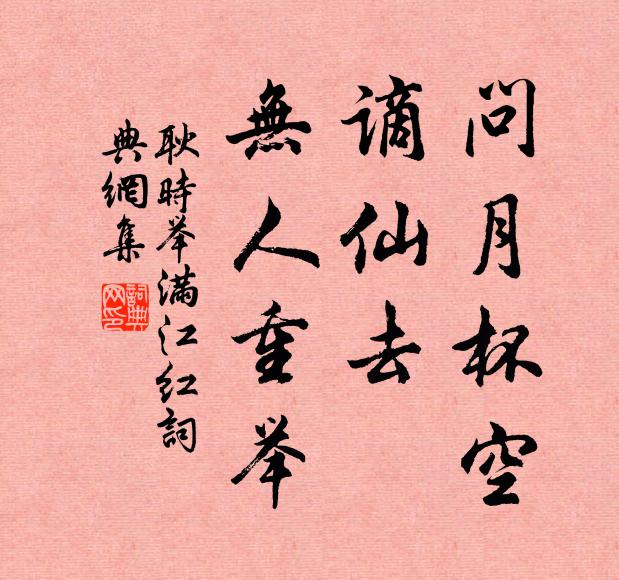 問月杯空
謫仙去
無人重举
耿時举满江红詞
典網集
詞典网印